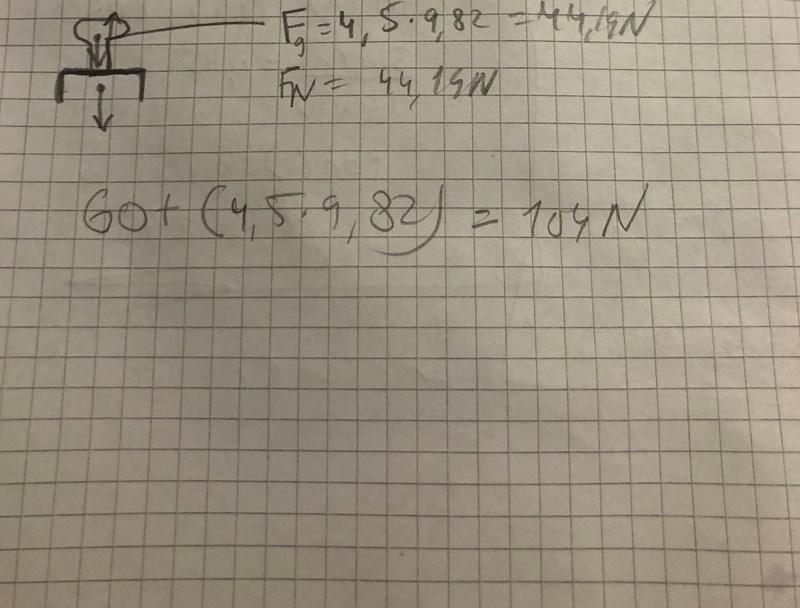 Fg = 4,5·9,82 = 44,19N
FN = 44,19N
60+(4,5·9,82) = 104N